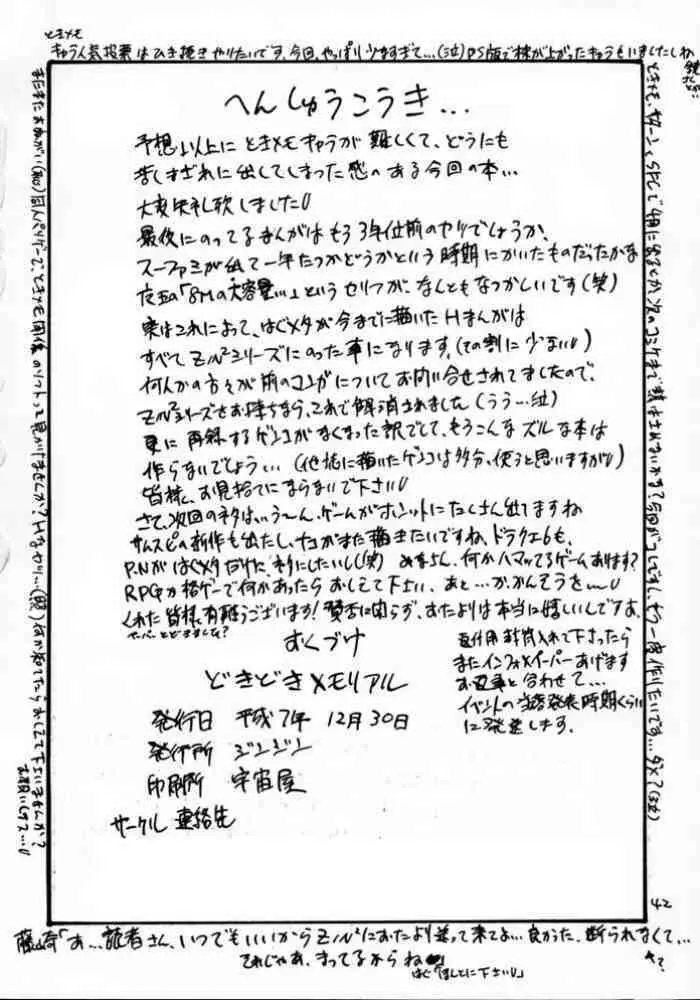 ときメモ
キャラ人気投票はひき続きやりたいです、今回、やっぱり少なすぎて…(泣)PS版で株が上がったキャラもいましたしね
へんしゅうこうき…
予想以上にときメモキャラが難しくて、どうにも
苦しまぎれに出してしまった感のある今回の本…
大変失礼致しました
最後にのってるまんがはもう3年位前のヤツでしょうか、
スーファミが出て一年たつかどうかという時期にかいたものだったかな
「8Mの大容量…」というセリフが、なんともなつかしいです(笑)
実はこれによって、はぐメタが今までに描いたHまんがは
すべてZ/N²シリーズにのった事になります。(その割に少ない)
何人かの方々が前のコピーについてお問い合せされてましたので、
Z/N²シリーズをお持ちなら、これで解消されました(うう…泣)
更に再録するゲンコがなくなった訳でして、もうこんなズルな本は
作らないでしょう…(他誌に描いたゲンコは多分、使うと思いますが)
皆様、お見捨てにならないで下さい
さて、次回のネタは…う〜ん、ゲームがホントにたくさん出てますね
サムスピの新作も出たし、ナコがまた描きたいですね、ドラクエ6も、
P.Nがはぐメタだけに、ネタにしたいし(笑) みなさん、何かハマッてるゲームあります?
RPGか格ゲーで何かあったらおしえて下さい、あと…か、かんそうを…
くれた皆様、有難うございます!賛否に関らず、おたよりは本当に嬉しいんですよ、
ペーパーとどきました?
おくづけ
どきどきメモリアル
発行日 平成7年 12月30日
発行所 ジンジン
印刷所 宇宙屋
サークル 連絡先
返信用封筒入れて下さったら
またインフォメイーパーあげます
お返事と合わせて…
イベントの当落発表時期くらい
に発送します。
ときメモ、サターンとSFCで4月に出るとか、次のコミケまで熱は止めないかな?今回がコレですし、もう一度作りたいです…ダメ?(泣)
またまたおねがい(殴)同人ベリゲーで、ときメモ関係のソフトって見かけませんか?Hなヤツ…(照)なにか知ってたらおしえて下さいませんか?
お願いしマス…
42
藤崎「あ…読者さん、いつでもいいからZ/N²におたより送って来てよ…良かった、断られなくて…
それじゃあ、まってるからね」
はぐ「ほんとに下さい」